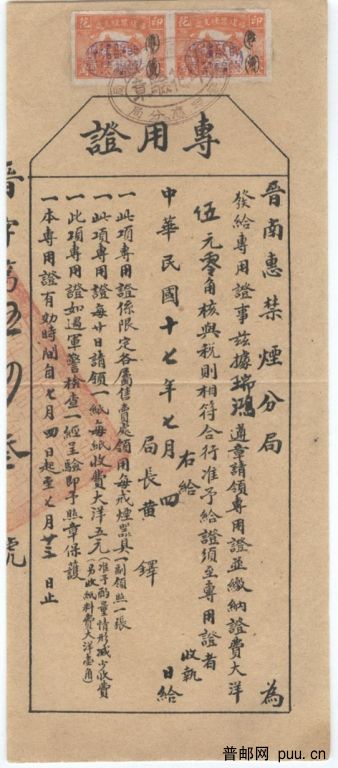 印 花
證用專
晉南惠禁煙分局 為
發給專用證事茲據瑞鴻遵章請領專用證並繳納證費大洋
伍元零角核與稅則相符合行准予給證須至專用證者
右給 收執
中華民國十七年七月四日給
局長黃鐸
一此項專用證係限定各屬售賣處領用每戒煙器具一副領照一張
一此項專用證每廿日請領一紙每紙收費大洋五元(准予酌量情形減少收費另收紙料費大洋壹角)
一此項專用證如過軍警檢查一經呈驗即予照章保護
一本專用證有効時間自七月四日起至七月廿三日止
晉字第 號
普邮网 puu.cn